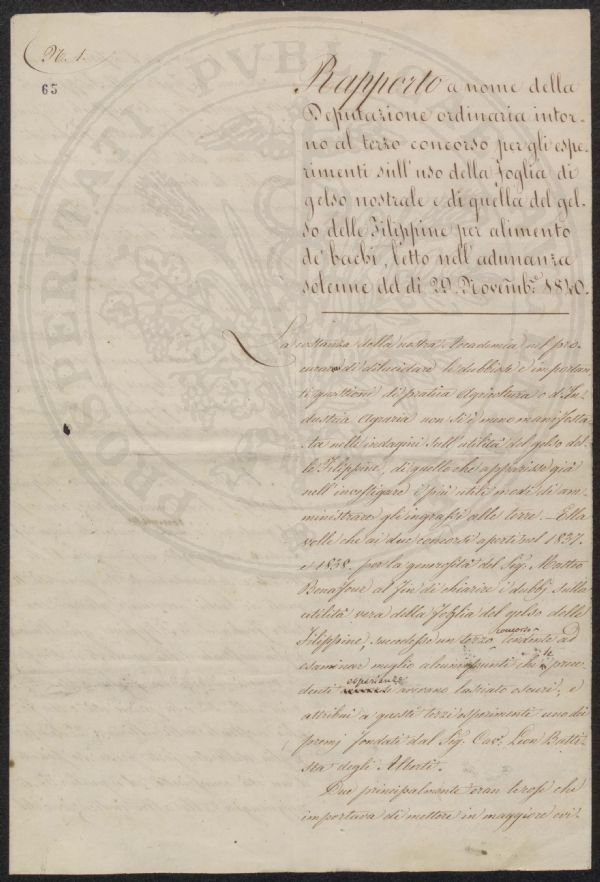 N. 1.
65
Rapporto a nome della
Deputazione ordinaria intor-
no al terzo concorso per gli espe-
rimenti sull'uso della foglia di
gelso nostrale e di quella del gel-
so delle Filippine per alimento
de' bachi, letto nell'adunanza
solenne del dì 29. Novembre 1840.
La costanza della nostra Accademia nel pro-
curare di dilucidare le dubbiose e importan-
ti questioni di pratica Agricoltura e d'In-
dustria Agraria non si è meno manifesta-
ta nelle indagini sull'utilità del gelso del-
le Filippine, di quello che apparisse già
nell'investigare i più utili modi di am-
ministrare gli ingrassi alle terre. - Ella
volle che ai due concorsi aperti nel 1837.
e 1838. per la generosità del Sig. Matteo
Bonafous al fin di chiarire i dubbj sulla
utilità vera della foglia del gelso delle
Filippine, succedesse un terzo concorso tendente ad
esaminar meglio alcuni punti che i prece-
denti esperimenti avevano lasciato oscuri, e
attribuì a questi terzi esperimenti uno dei
premj fondati dal Sig. Cav. Leon Batti-
sta degli Alberti.
Due principalmente eran le cose che
importava di mettere in maggiore evi-
PROSPERITATI PVBLICAE